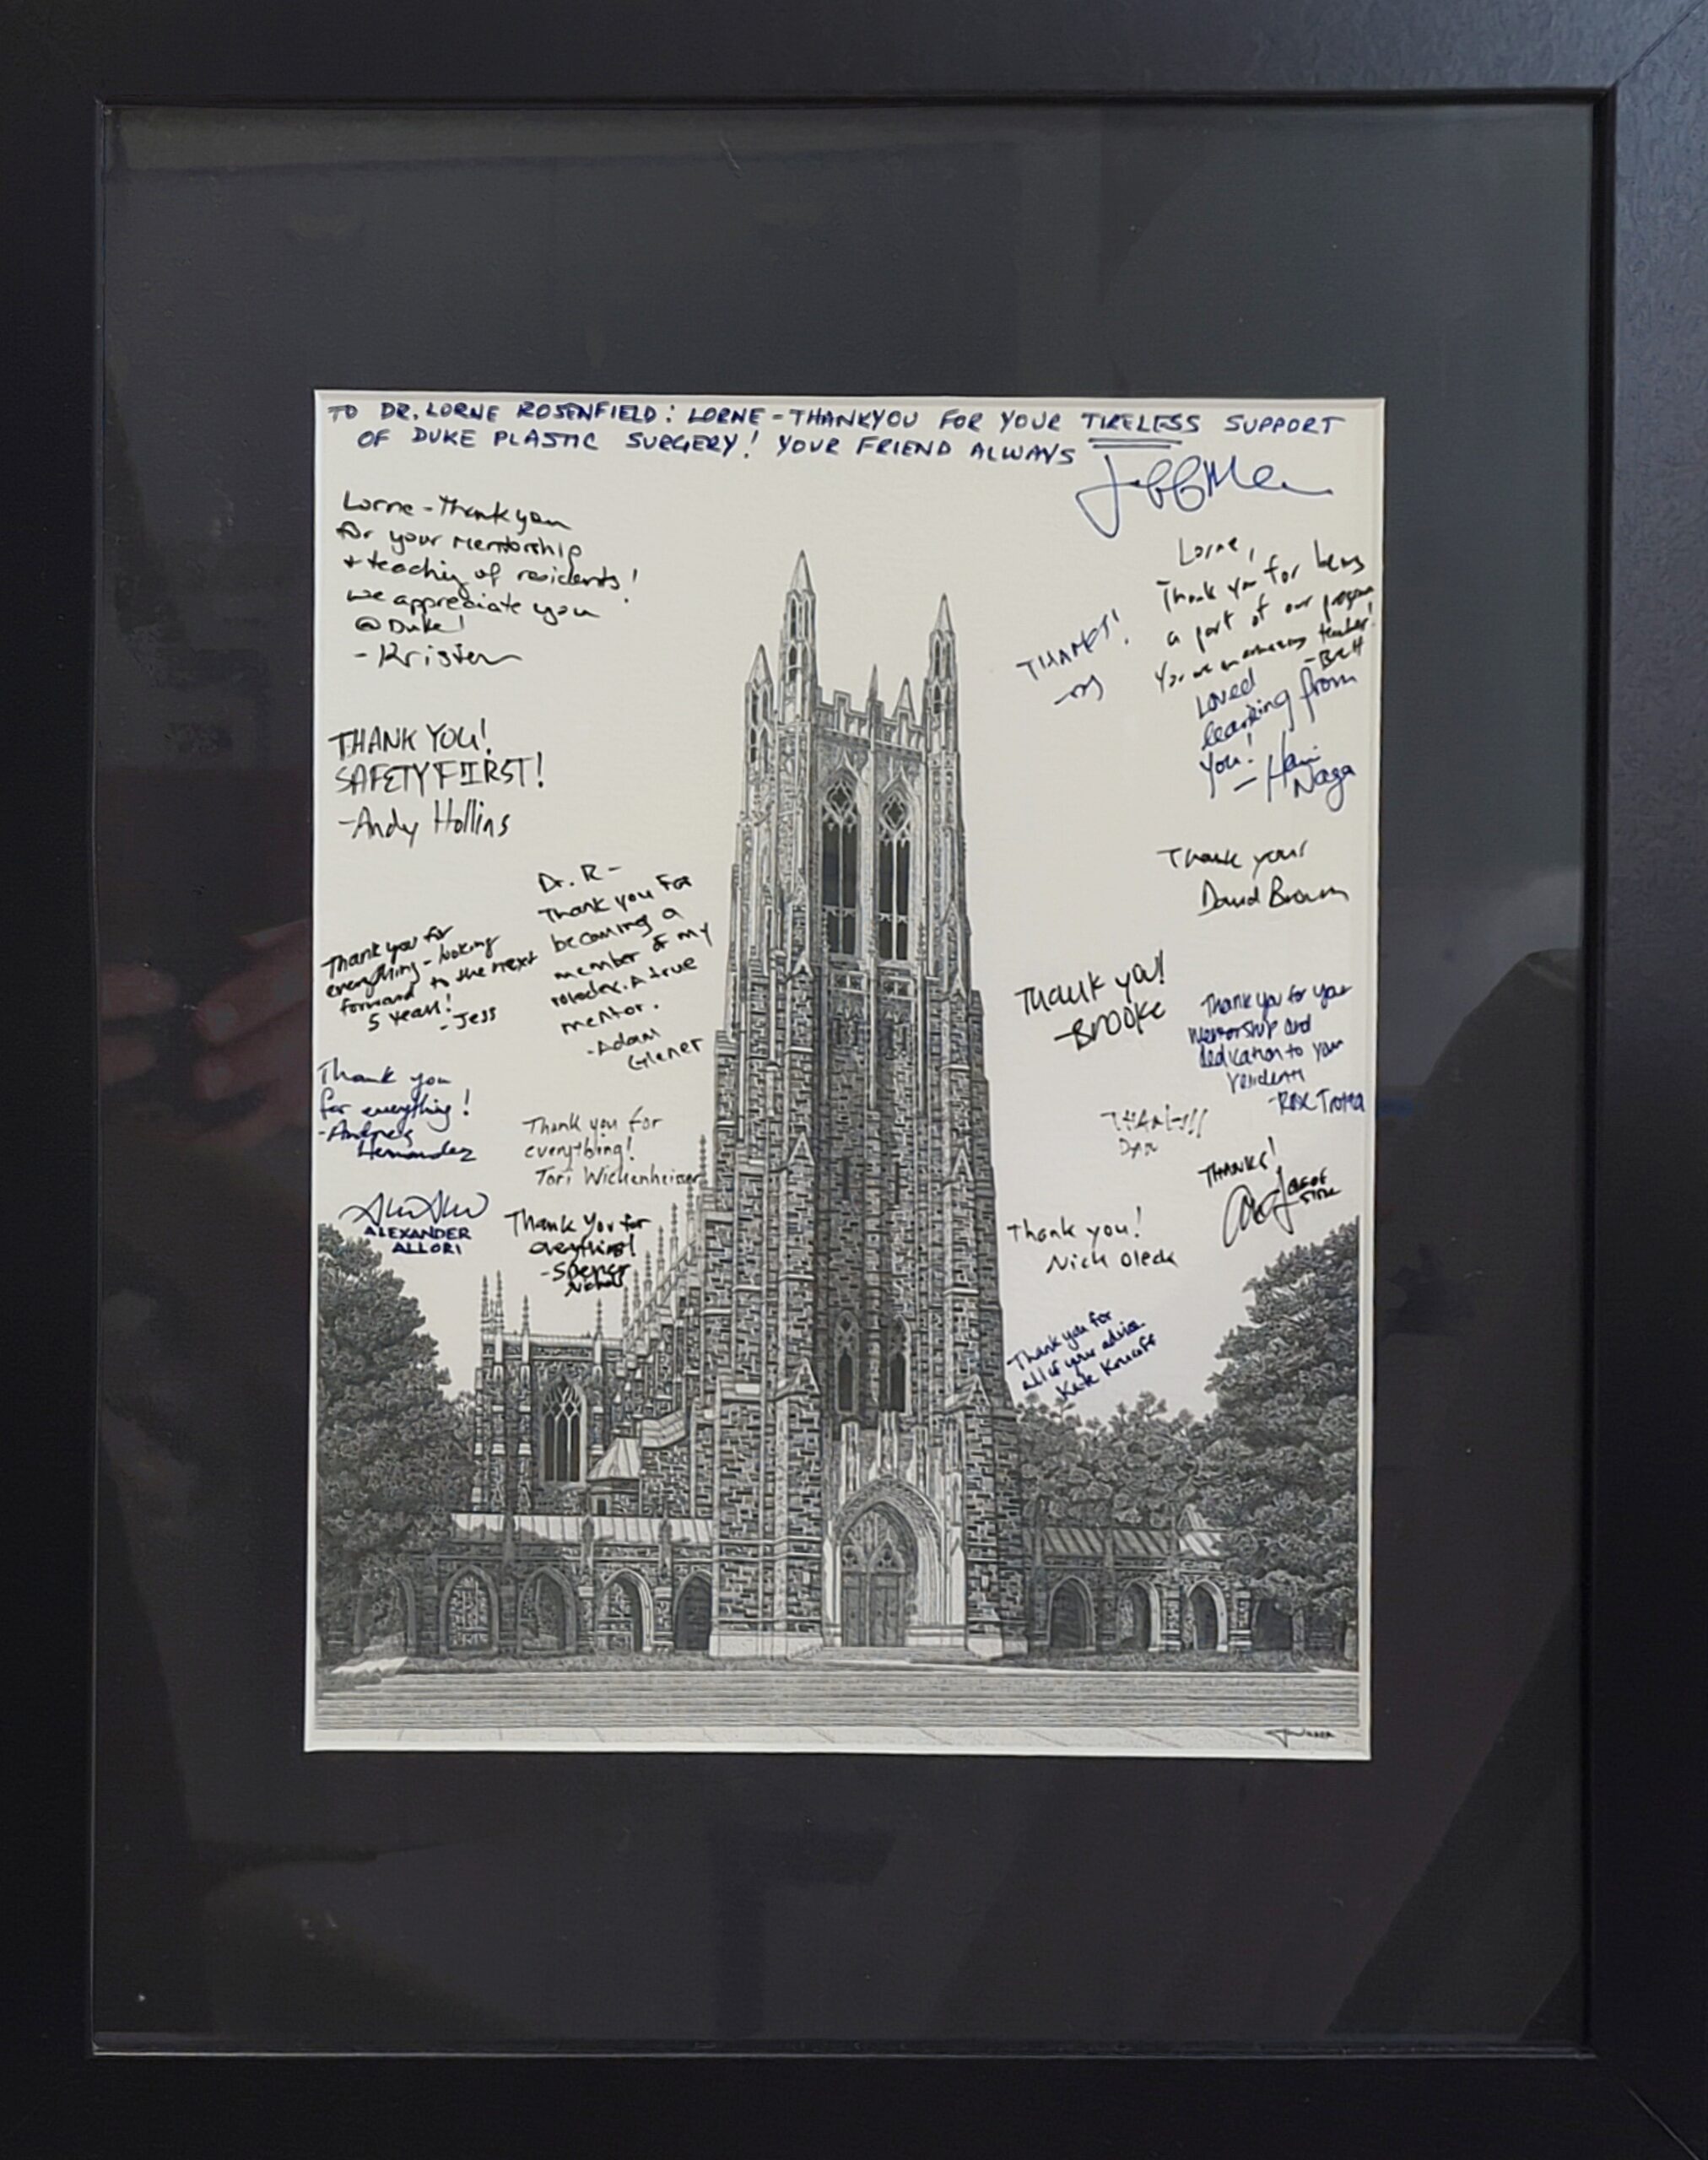 TO DR. LORNE ROSENFIELD: LORNE - THANKYOU FOR YOUR TIRELESS SUPPORT
OF DUKE PLASTIC SURGERY! YOUR FRIEND ALWAYS
Lorne - Thank you
for your mentorship
+ teaching of residents!
we appreciate you
@ Duke!
- Kristen
Lorne,
Thank you for being
a part of our program
You are an amazing teacher!
- Brett
THANKS!
Loved
learning from
you!
- Hani
Naga
THANK YOU!
SAFETY FIRST!
- Andy Hollins
Thank you!
David Brown
Dr. R -
Thank you for
becoming a
member of my
rolodex. A true
mentor.
- Adam
Glener
Thank you for
everything - looking
forward to the next
5 years!
- Jess
Thank you!
- BROOKE
Thank you for your
mentorship and
dedication to your
residents
- Rose Trotta
Thank you
for everything!
- Andrea
Hernandez
Thank you for
everything!
Tori Wickenheiser
THANKS!
ALEXANDER
ALLORI
Thank You for
everything!
- Spencer
Nichols
THANKS!
Thank you!
Nick Oleck
Thank you for
all of your advice
Kate